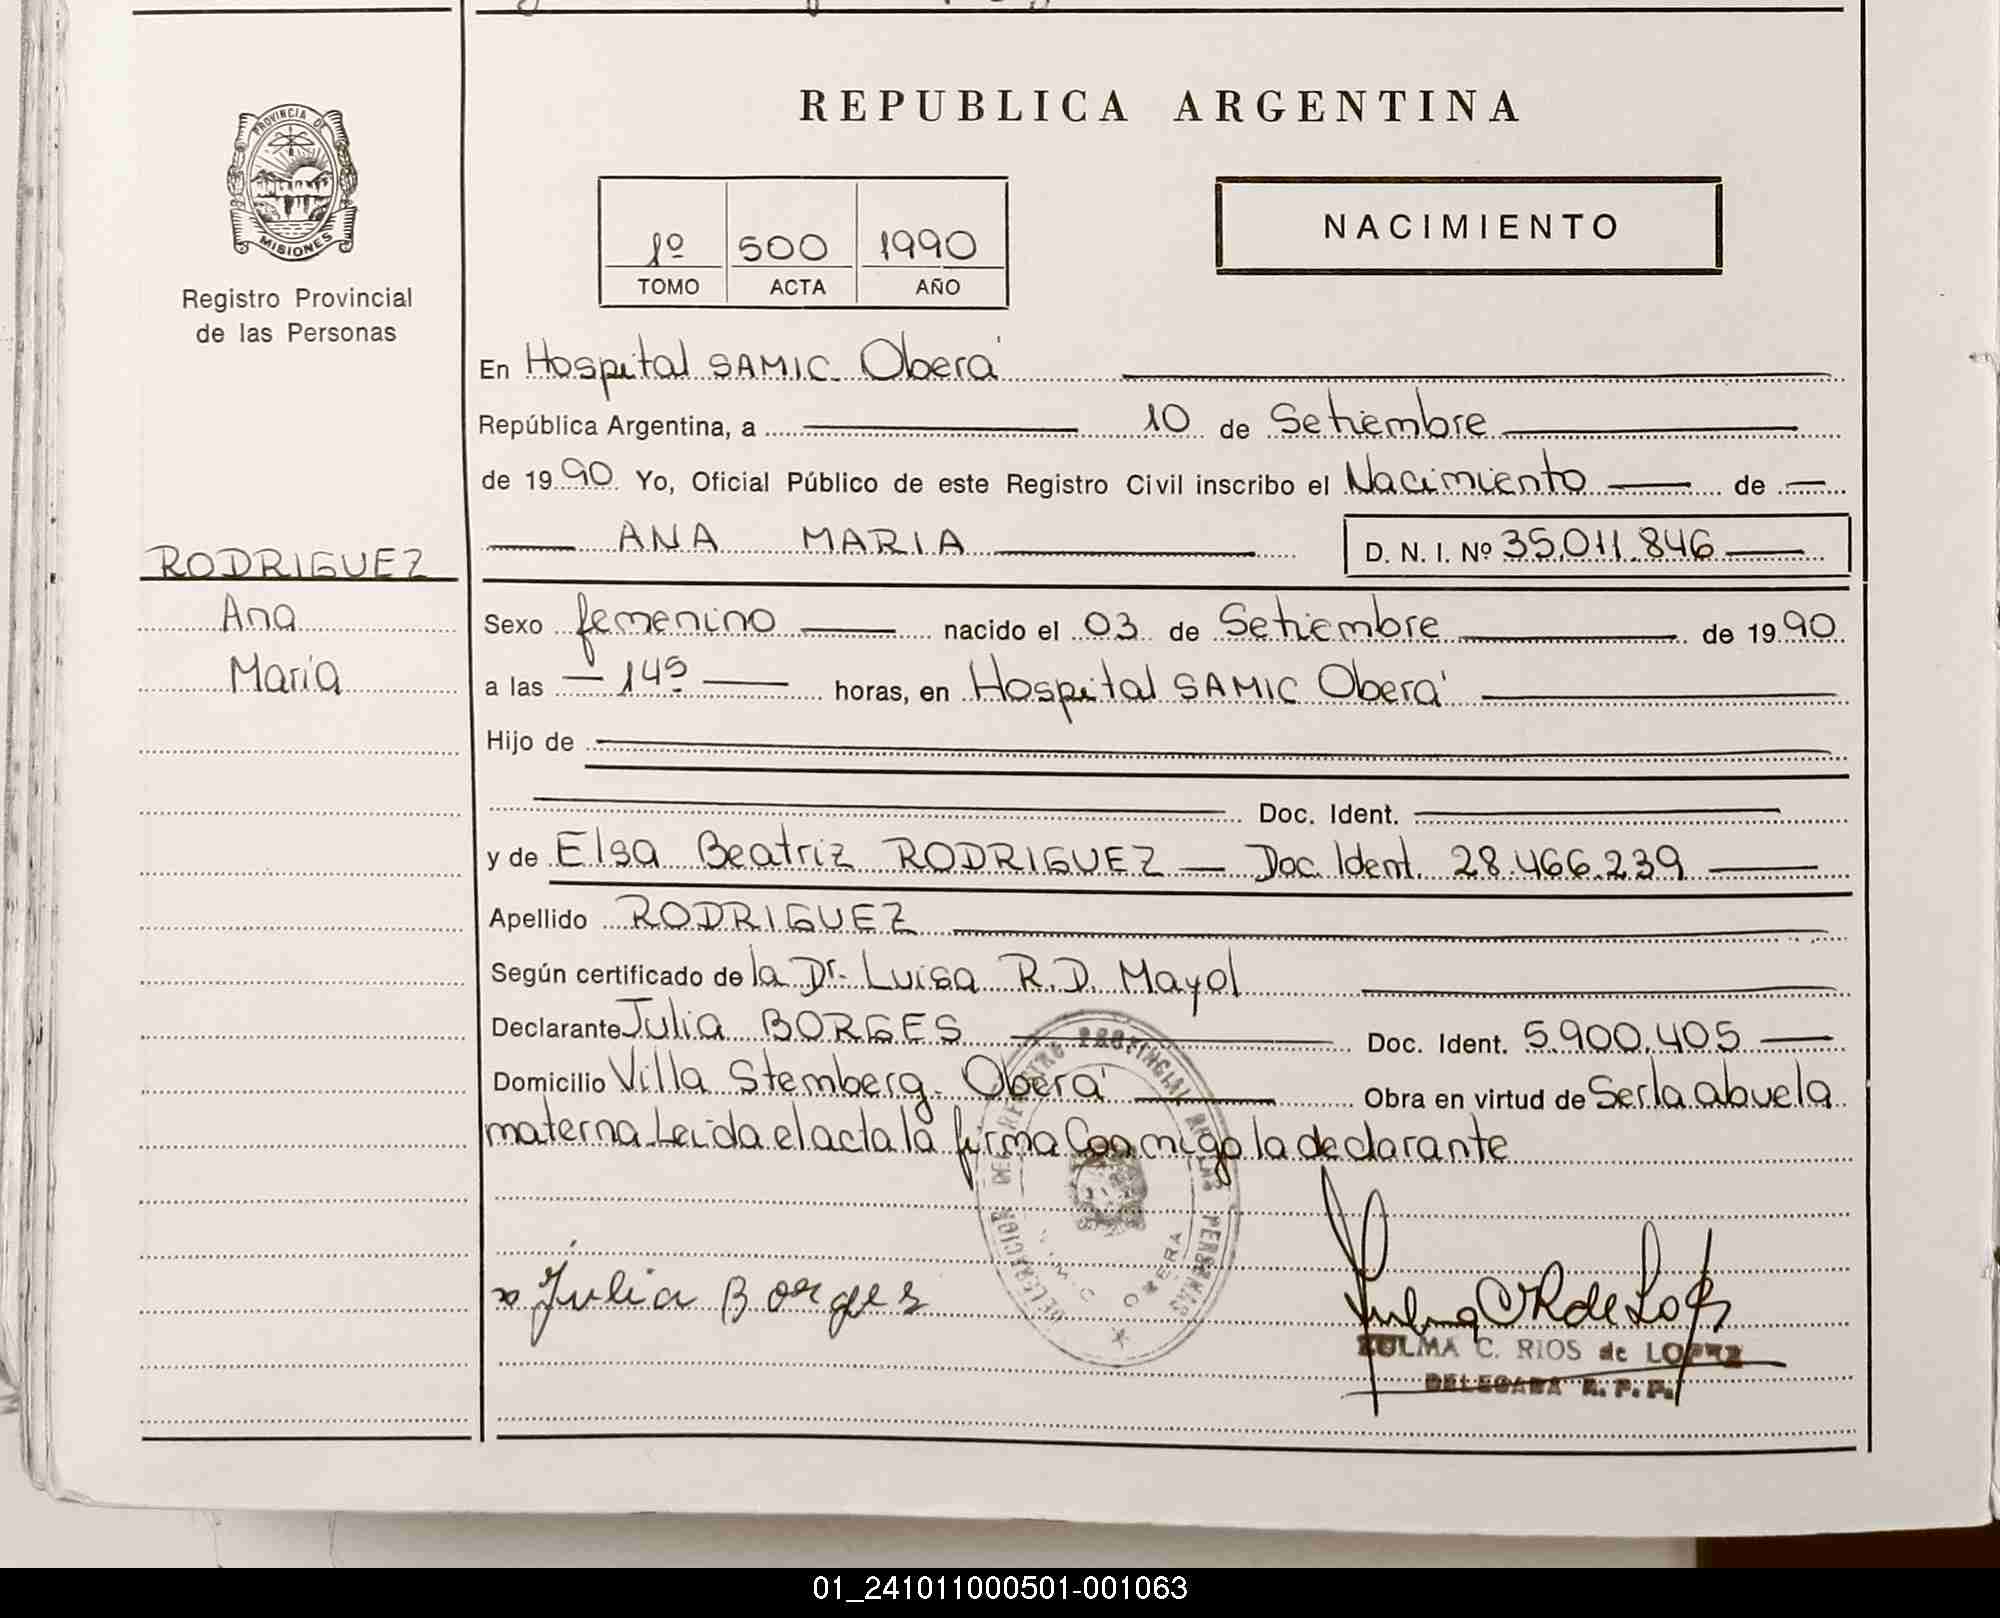 REPUBLICA ARGENTINA
PROVINCIA DE
MISIONES
Registro Provincial
de las Personas
1º 500 1990
TOMO ACTA AÑO
NACIMIENTO
En Hospital SAMIC Oberá
República Argentina, a 10 de Setiembre
de 1990 Yo, Oficial Público de este Registro Civil inscribo el Nacimiento de
ANA MARIA D. N. I. Nº 35.011.846
RODRIGUEZ
Ana
María
Sexo femenino nacido el 03 de Setiembre de 1990
a las 14º horas, en Hospital SAMIC Oberá
Hijo de
Doc. Ident.
y de Elsa Beatriz RODRIGUEZ Doc. Ident. 28.466.239
Apellido RODRIGUEZ
Según certificado de la Dr. Luisa R.D. Mayol
Declarante Julia BORGES Doc. Ident. 5.900.405
Domicilio Villa Stemberg. Oberá Obra en virtud de Ser la abuela
materna. Leida el acta la firma Conmigo la declarante
DELEGACION DEL REGISTRO PROVINCIAL DE LAS PERSONAS
OBERA
Julia Borges
ZULMA C. RIOS de LOPEZ
DELEGADA R. P. P.
01_241011000501-001063